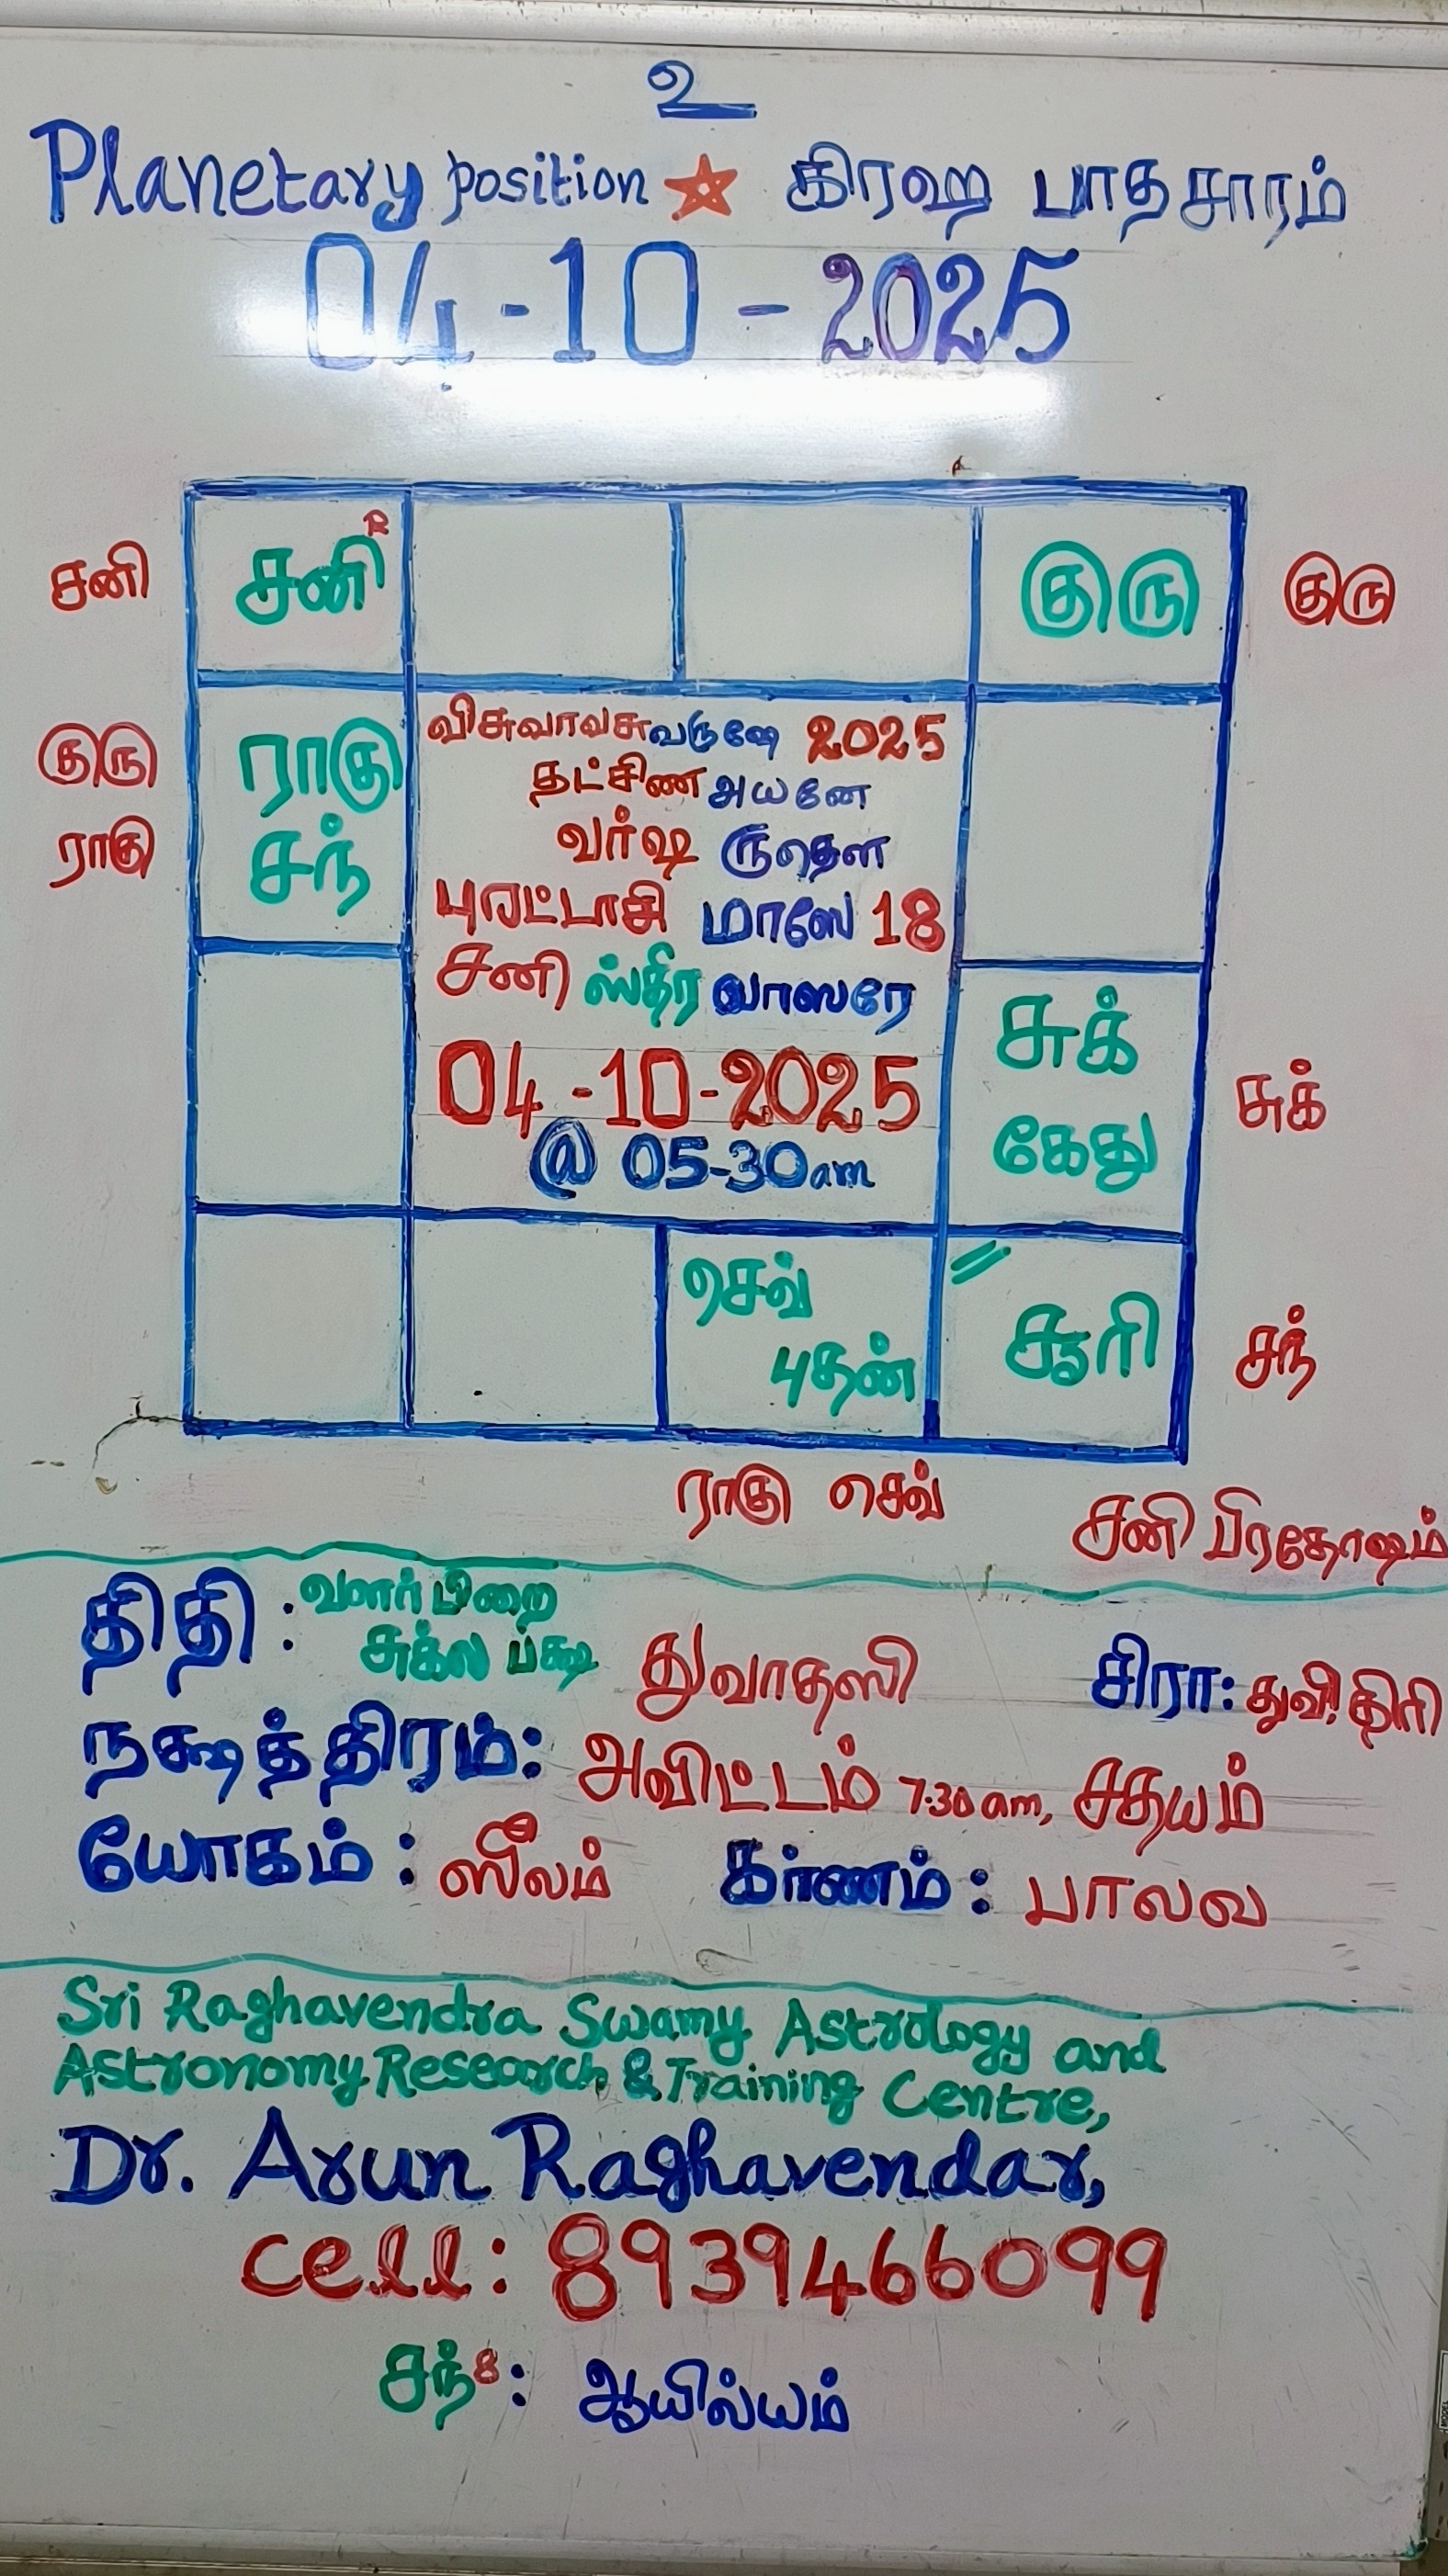 உ
Planetary position ☆ கிரஹ பாதசாரம்
04-10-2025
சனி சனி R குரு குரு
குரு ராகு
ராகு சந்
விசுவாவசுவருஷே 2025
தட்சிண அயனே
வர்ஷ ருதௌ
புரட்டாசி மாஸே 18
சனி ஸ்திர வாஸரே
04-10-2025
@ 05-30am
சுக் சுக்
கேது
செவ்
புதன்
சூரி சந்
ராகு செவ்
சனி பிரதோஷம்
திதி : வளர்பிறை
சுக்ல பக்ஷ துவாதஸி சிரா: துவி, திரி
நக்ஷத்திரம்: அவிட்டம் 7.30am, சதயம்
யோகம் : ஸீலம் கர்ணம் : பாலவ
Sri Raghavendra Swamy Astrology and
Astronomy Research & Training Centre,
Dr. Arun Raghavendar,
cell: 8939466099
சந்8 : ஆயில்யம்